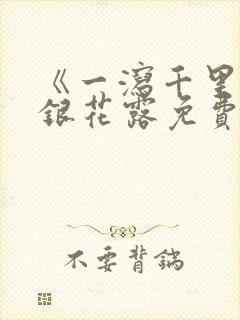 《一瀉千里
銀花露免費
不要背鍋